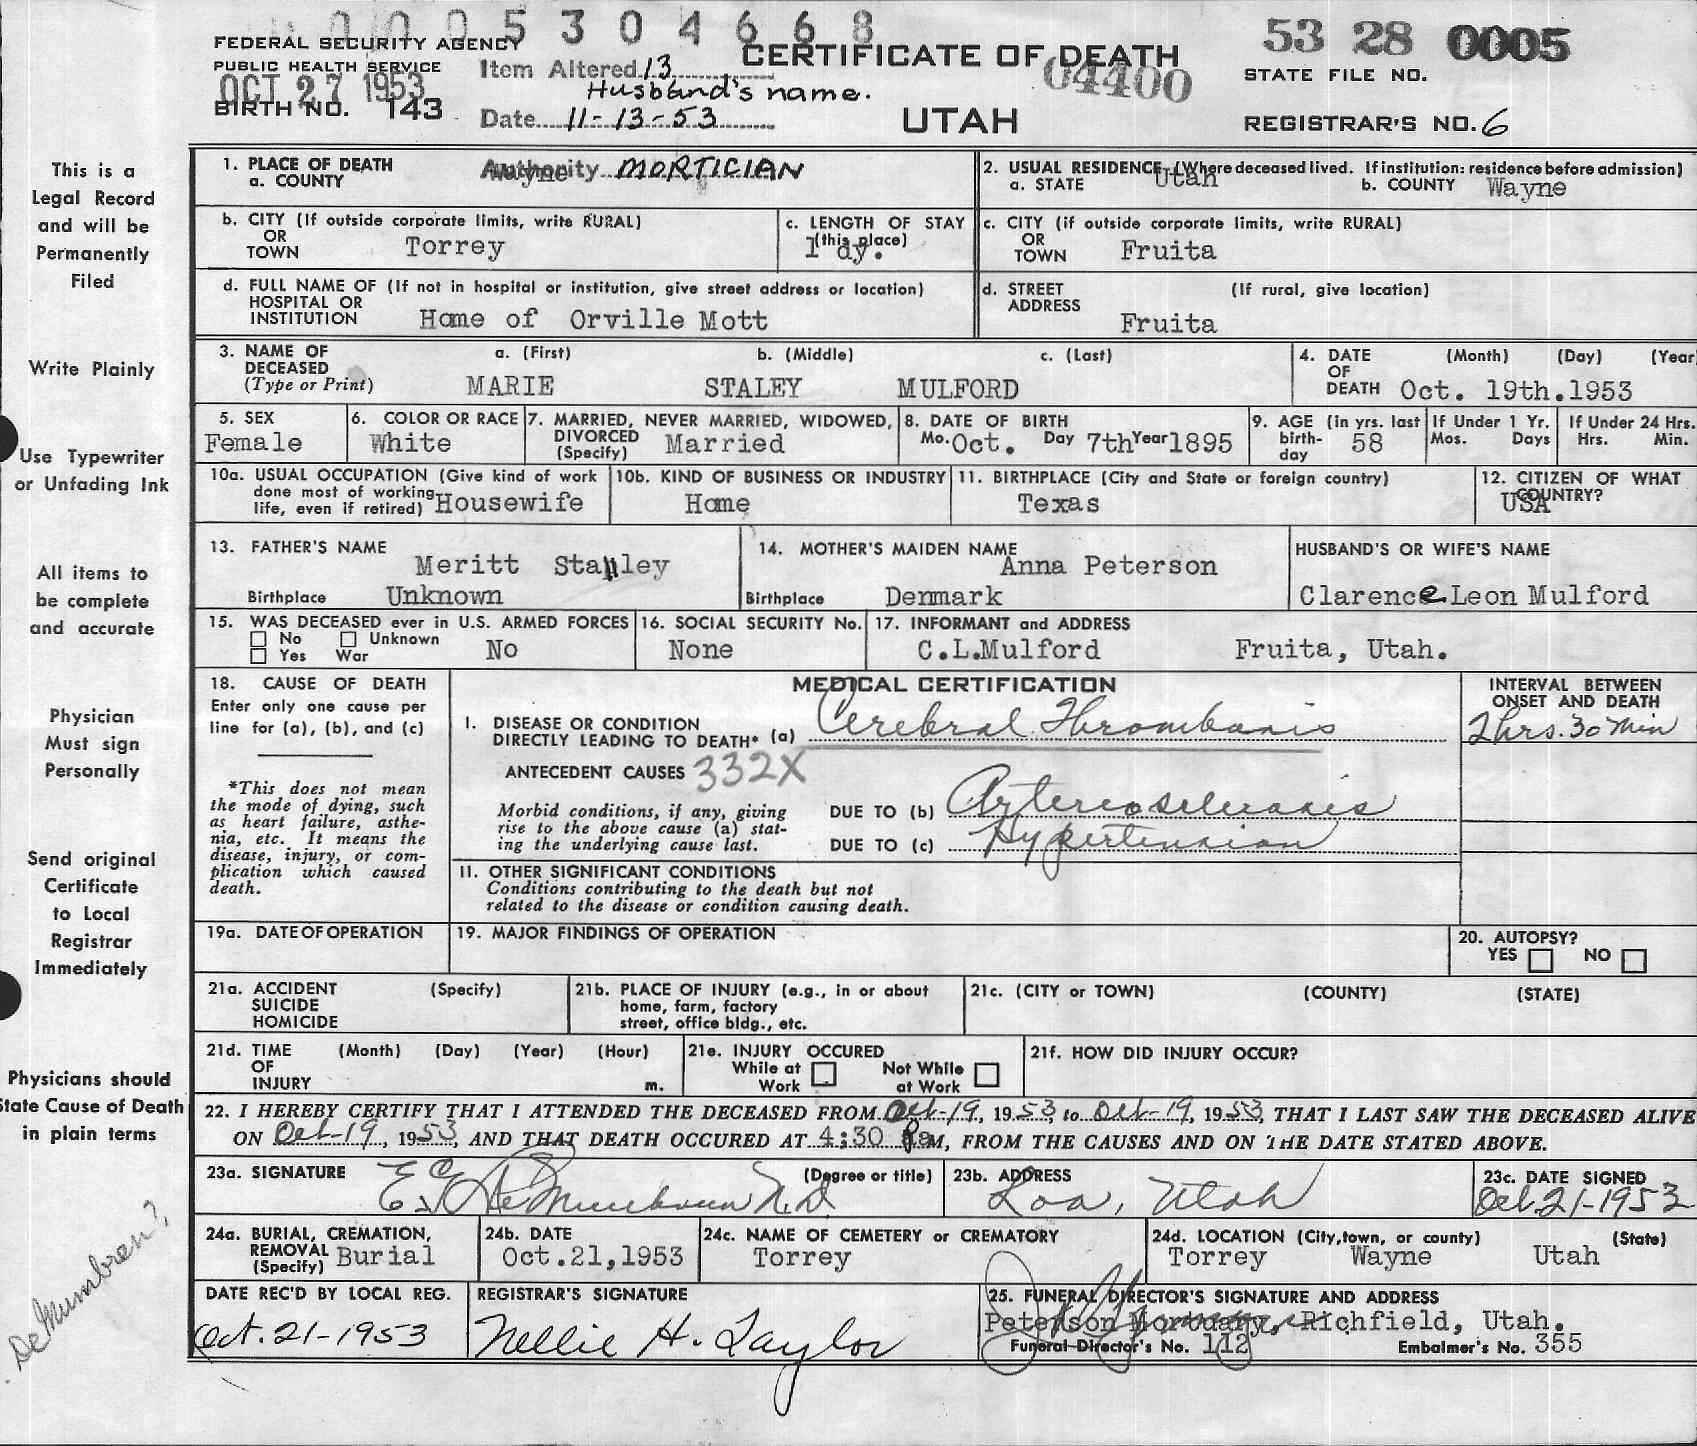 0005304668
53 28 0005
FEDERAL SECURITY AGENCY
PUBLIC HEALTH SERVICE
OCT 27 1953
BIRTH NO. 143
Item Altered 13
Husband's name.
Date 11-13-53
CERTIFICATE OF DEATH
04400
UTAH
STATE FILE NO.
REGISTRAR'S NO. 6
This is a
Legal Record
and will be
Permanently
Filed
Write Plainly
Use Typewriter
or Unfading Ink
All items to
be complete
and accurate
Physician
Must sign
Personally
Send original
Certificate
to Local
Registrar
Immediately
Physicians should
State Cause of Death
in plain terms
DeMumbren?
1. PLACE OF DEATH
a. COUNTY Wayne
Authority MORTICIAN
2. USUAL RESIDENCE (Where deceased lived. If institution: residence before admission)
a. STATE Utah b. COUNTY Wayne
b. CITY (If outside corporate limits, write RURAL)
OR
TOWN Torrey
c. LENGTH OF STAY
(this place)
1 dy.
c. CITY (if outside corporate limits, write RURAL)
OR
TOWN Fruita
d. FULL NAME OF (If not in hospital or institution, give street address or location)
HOSPITAL OR
INSTITUTION Home of Orville Mott
d. STREET (If rural, give location)
ADDRESS
Fruita
3. NAME OF a. (First) b. (Middle) c. (Last)
DECEASED
(Type or Print) MARIE STALEY MULFORD
4. DATE (Month) (Day) (Year
OF
DEATH Oct. 19th.1953
5. SEX
Female
6. COLOR OR RACE
White
7. MARRIED, NEVER MARRIED, WIDOWED,
DIVORCED
(Specify) Married
8. DATE OF BIRTH
Mo. Oct. Day 7th Year 1895
9. AGE (in yrs. last
birth-
day 58
If Under 1 Yr.
Mos. Days
If Under 24 Hrs.
Hrs. Min.
10a. USUAL OCCUPATION (Give kind of work
done most of working
life, even if retired) Housewife
10b. KIND OF BUSINESS OR INDUSTRY
Home
11. BIRTHPLACE (City and State or foreign country)
Texas
12. CITIZEN OF WHAT
COUNTRY?
USA
13. FATHER'S NAME
Meritt Stanley
Birthplace Unknown
14. MOTHER'S MAIDEN NAME
Anna Peterson
Birthplace Denmark
HUSBAND'S OR WIFE'S NAME
Clarence Leon Mulford
15. WAS DECEASED ever in U.S. ARMED FORCES
No Unknown
Yes War No
16. SOCIAL SECURITY No.
None
17. INFORMANT and ADDRESS
C.L.Mulford Fruita, Utah.
18. CAUSE OF DEATH
Enter only one cause per
line for (a), (b), and (c)
*This does not mean
the mode of dying, such
as heart failure, asthe-
nia, etc. It means the
disease, injury, or com-
plication which caused
death.
MEDICAL CERTIFICATION
I. DISEASE OR CONDITION
DIRECTLY LEADING TO DEATH* (a) Cerebral Thrombosis
ANTECEDENT CAUSES 332X
Morbid conditions, if any, giving
rise to the above cause (a) stat-
ing the underlying cause last.
DUE TO (b) Arteriosclerosis
DUE TO (c) Hypertension
INTERVAL BETWEEN
ONSET AND DEATH
2 hrs. 30 Min
11. OTHER SIGNIFICANT CONDITIONS
Conditions contributing to the death but not
related to the disease or condition causing death.
19a. DATE OF OPERATION
19. MAJOR FINDINGS OF OPERATION
20. AUTOPSY?
YES NO
21a. ACCIDENT (Specify)
SUICIDE
HOMICIDE
21b. PLACE OF INJURY (e.g., in or about
home, farm, factory
street, office bldg., etc.
21c. (CITY or TOWN) (COUNTY) (STATE)
21d. TIME (Month) (Day) (Year) (Hour)
OF
INJURY m.
21e. INJURY OCCURED
While at Not While
Work at Work
21f. HOW DID INJURY OCCUR?
22. I HEREBY CERTIFY THAT I ATTENDED THE DECEASED FROM Oct-19, 1953, to Oct-19, 1953, THAT I LAST SAW THE DECEASED ALIVE
ON Oct-19, 1953, AND THAT DEATH OCCURED AT 4:30 PM, FROM THE CAUSES AND ON THE DATE STATED ABOVE.
23a. SIGNATURE (Degree or title)
M.D.
23b. ADDRESS
Loa, Utah
23c. DATE SIGNED
Oct. 21-1953
24a. BURIAL, CREMATION,
REMOVAL
(Specify) Burial
24b. DATE
Oct.21,1953
24c. NAME OF CEMETERY or CREMATORY
Torrey
24d. LOCATION (City,town, or county) (State)
Torrey Wayne Utah
DATE REC'D BY LOCAL REG.
Oct. 21-1953
REGISTRAR'S SIGNATURE
Nellie H. Taylor
25. FUNERAL DIRECTOR'S SIGNATURE AND ADDRESS
Peterson Mortuary, Richfield, Utah.
Funeral Director's No. 112 Embalmer's No. 355